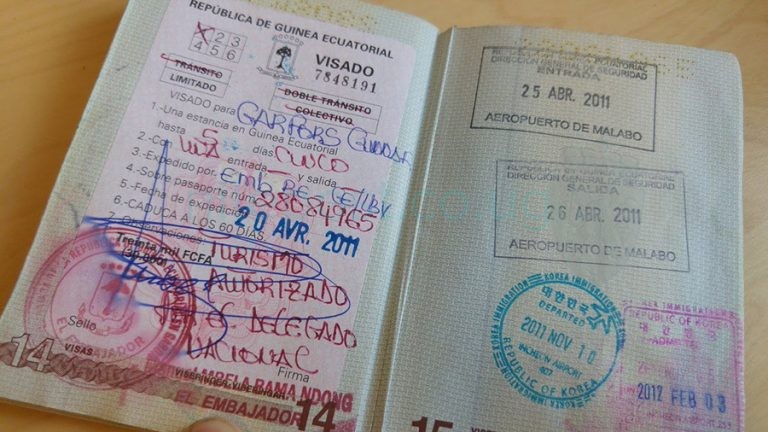 REPÚBLICA DE GUINEA ECUATORIAL
1 2 3
4 5 6
VISADO
7848191
TRÁNSITO
LIMITADO
DOBLE TRÁNSITO
COLECTIVO
VISADO para
1.-Una estancia en Guinea Ecuatorial
hasta 5 días CINCO
2.-Con entrada y salida
3.-Expedido por Emb RE
4.-Sobre pasaporte núm. 28084965
5.-Fecha de expedición 20 AVR. 2011
6.-CADUCA A LOS 60 DÍAS
7.-Observaciones: TURISMO
Treinta mil FCFA
AUTORIZADO
DELEGADO
NACIONAL
Sello
Firma
EL EMBAJADOR
14
VISAS
VISERINGER
BAMA NDONG
EL EMBAJADOR
14
REPUBLICA DE GUINEA ECUATORIAL
DIRECCIÓN GENERAL DE SEGURIDAD
ENTRADA
25 ABR. 2011
AEROPUERTO DE MALABO
REPUBLICA DE GUINEA ECUATORIAL
DIRECCIÓN GENERAL DE SEGURIDAD
SALIDA
26 ABR. 2011
AEROPUERTO DE MALABO
KOREA IMMIGRATION
대한민국
DEPARTED
2011 NOV 10
INCHEON AIRPORT
REPUBLIC OF KOREA
KOREA IMMIGRATION
REPUBLIC OF KOREA
대한민국
ADMITTED
2012 FEB 03
INCHEON AIRPORT
15
VISAS